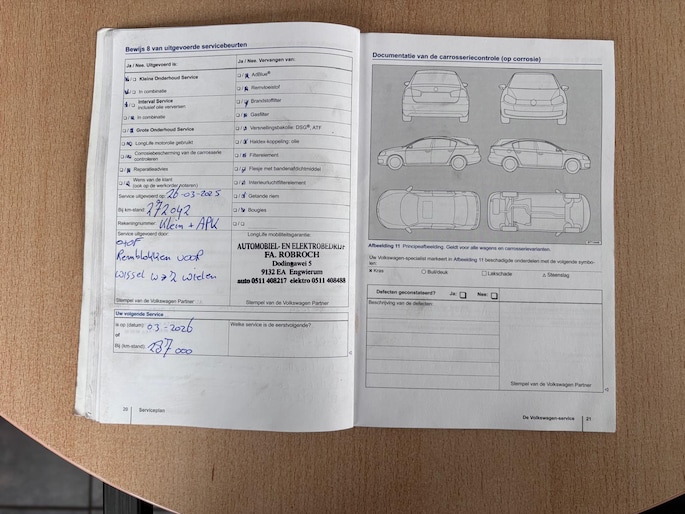 Bewijs 8 van uitgevoerde servicebeurten
Ja / Nee. Uitgevoerd is:
Kleine Onderhoud Service
In combinatie
Interval Service
inclusief olie verversen
In combinatie
Grote Onderhoud Service
LongLife motorolie gebruikt
Corrosiebescherming van de carrosserie
controleren
Reparatieadvies
Wens van de klant
(ook op de werkorder noteren)
Service uitgevoerd op: 26-03-2025
Bij km-stand: 272042
Rekeningnummer: Klein + APK
Service uitgevoerd door:
Remblokken voor
wissel
wielen
Stempel van de Volkswagen Partner
Ja / Nee. Vervangen van:
AdBlue®
Remvloeistof
Brandstoffilter
Gasfilter
Versnellingsbakolie: DSG®, ATF
Haldex koppeling: olie
Filterelement
Flesje met bandenafdichtmiddel
Interieurluchtfilterelement
Getande riem
Bougies
LongLife mobiliteitsgarantie:
AUTOMOBIEL- EN ELEKTROBEDRIJF
FA. ROBROCH
Dodingawei 5
9132 EA Engwierum
auto 0511 408217 elektro 0511 408488
Stempel van de Volkswagen Partner
Uw volgende Service
is op (datum): 03-2026
of
Bij (km-stand): 287000
Welke service is de eerstvolgende?
20 Serviceplan
Documentatie van de carrosseriecontrole (op corrosie)
Afbeelding 11 Principeafbeelding. Geldt voor alle wagens en carrosserievarianten.
Uw Volkswagen-specialist markeert in Afbeelding 11 beschadigde onderdelen met de volgende symbo-
len:
x Kras
Buil/deuk
Lakschade
Steenslag
Defecten geconstateerd? Ja: Nee:
Beschrijving van de defecten:
Stempel van de Volkswagen Partner
De Volkswagen-service 21